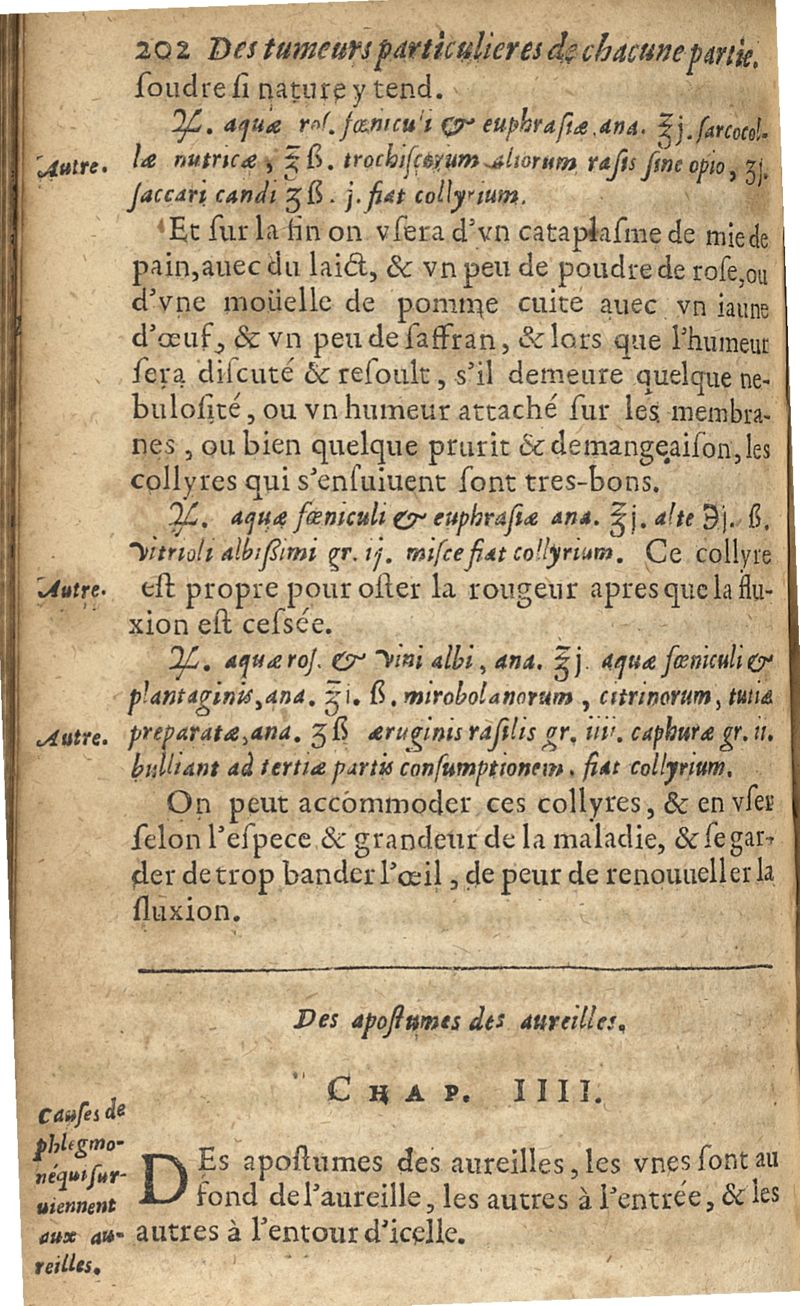 202 Des tumeurs particulieres de chacune partie.
ſoudre ſi nature y tend.
℞. aquæ roſ. fœniculi & euphraſiæ, ana. ℥j. ſarcocol-
Autre.
læ nutricæ, ℥ ß. trochiſcorum alborum raſis ſine opio, ʒj.
ſaccari candi ʒ ß. j. fiat collyrium.
Et ſur la fin on vſera d'vn cataplaſme de mie de
pain, auec du laict, & vn peu de poudre de roſe, ou
d'vne moüelle de pomme cuite auec vn iaune
d'œuf, & vn peu de ſaffran, & lors que l'humeur
ſera diſcuté & reſoult, s'il demeure quelque ne-
buloſité, ou vn humeur attaché ſur les membra-
nes, ou bien quelque prurit & demangeaiſon, les
collyres qui s'enſuiuent ſont tres-bons.
℞. aquæ fœniculi & euphraſiæ ana. ℥j. alte ℈j. ß.
vitrioli albißimi gr. ij. miſce fiat collyrium. Ce collyre
Autre.
eſt propre pour oſter la rougeur apres que la flu-
xion eſt ceſſée.
℞. aquæ roſ. & vini albi, ana. ℥j. aquæ fœniculi &
plantaginis, ana. ℥i. ß. mirobolanorum, citrinorum, tutiæ
Autre.
preparatæ, ana. ʒ ß æruginis raſilis gr. iiij. caphuræ gr. ii.
bulliant ad tertiæ partis conſumptionem. fiat collyrium.
On peut accommoder ces collyres, & en vſer
ſelon l'eſpece & grandeur de la maladie, & ſe gar-
der de trop bander l'œil, de peur de renouueller la
fluxion.
Des apoſtumes des aureilles.
CHAP. IIII.
Cauſes de
phlegmo-
né qui ſur-
uiennent
aux au-
reilles.
DEs apoſtumes des aureilles, les vnes ſont au
fond de l'aureille, les autres à l'entrée, & les
autres à l'entour d'icelle.